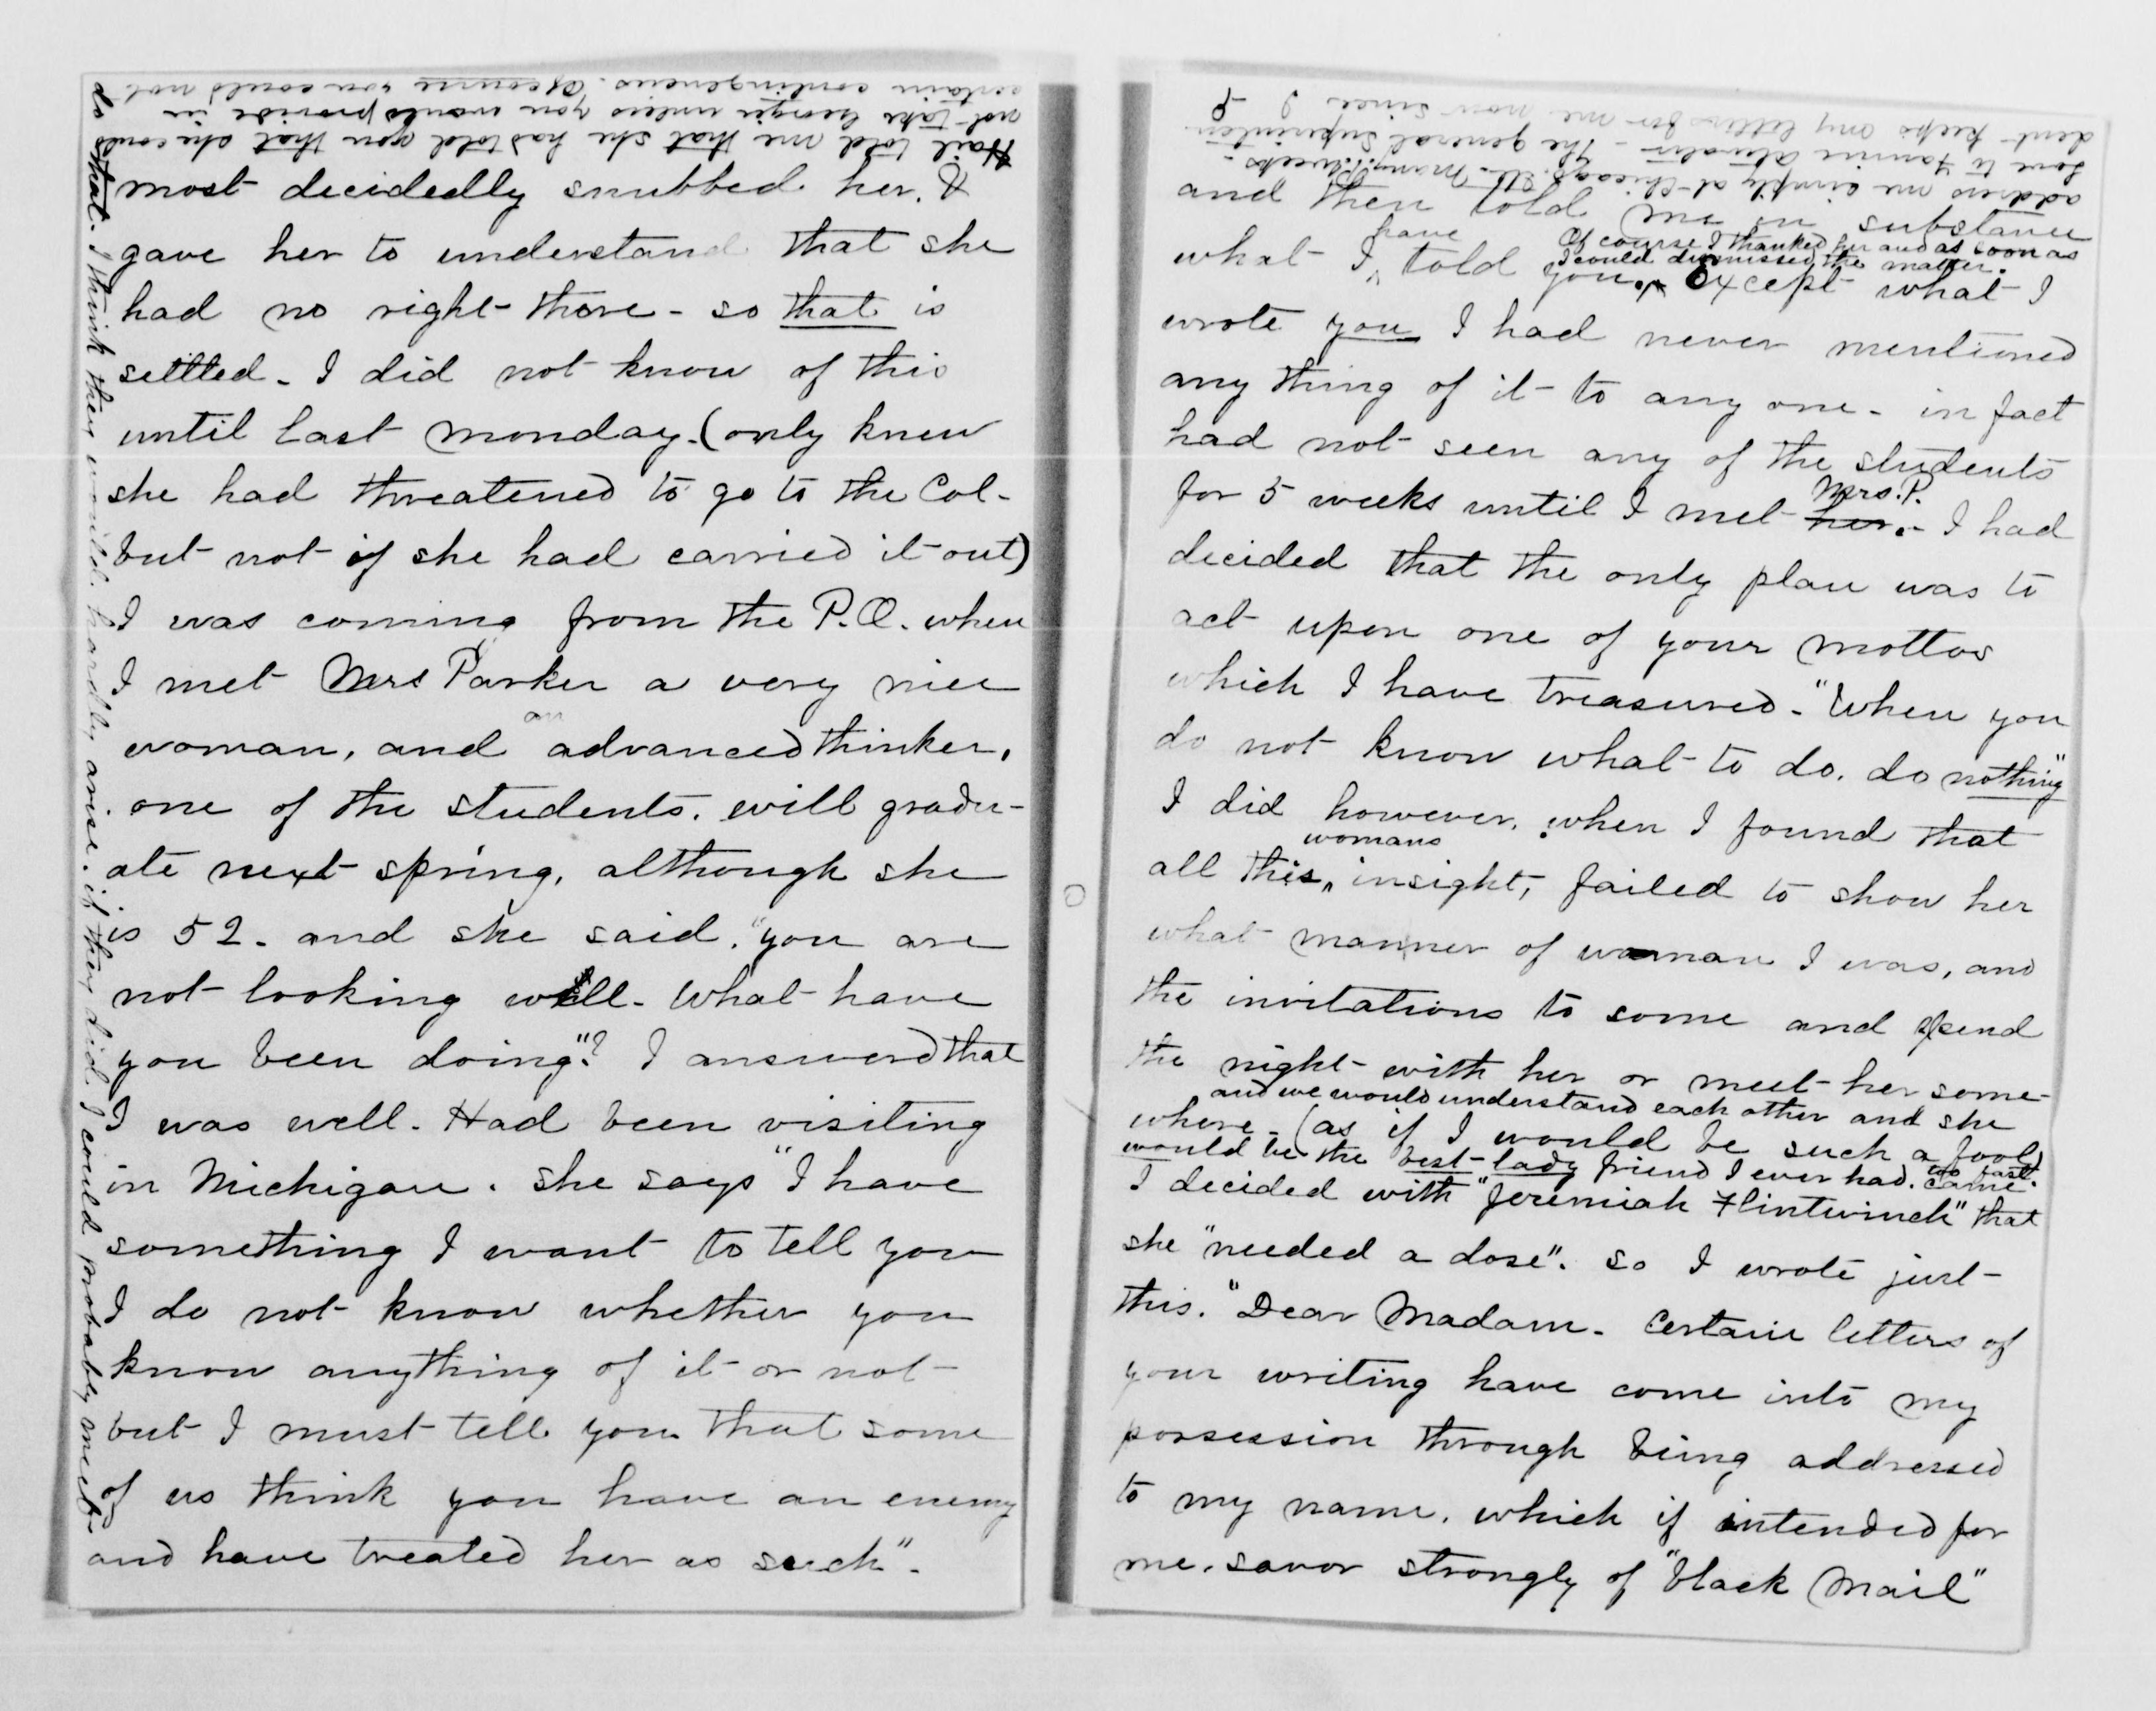 Hail told me that she had told you that she could
not take Georgie unless you would provide in
certain contingencies. Of course you could not
do that. I think they would hardly arise. if they did I could probably meet
most decidedly snubbed her. &
gave her to understand that she
had no right there - so that is
settled. I did not know of this
until last Monday. (only knew
she had threatened to go to the Col-
but not if she had carried it out)
I was coming from the P.O. when
I met Mrs Parker a very nice
woman, and an advanced thinker,
one of the students. will gradu-
ate next spring, although she
is 52. and she said. "you are
not looking well. What have
you been doing"? I answered that
I was well. Had been visiting
in Michigan. She says "I have
something I want to tell you
I do not know whether you
know anything of it or not
but I must tell you that some
of us think you have an enemy
and have treated her as such".
address me simply at Chicago Ill. Many
Love to Fannie The general Superinten-
dent keeps my letters for me now since I
and then told me in substance
what I have told you. Of course I thanked her and as soon as
I could dismissed the matter. Except what I
wrote you I had never mentioned
any thing of it to any one - in fact
had not seen any of the students
for 5 weeks until I met her. Mrs. P. - I had
decided that the only plan was to
act upon one of your mottos
which I have treasured - "When you
do not know what to do. do nothing"
I did however. when I found that
all this womans insight, failed to show her
what manner of woman I was, and
the invitations to come and spend
the night with her or meet her some-
where - and we would understand each other and she
would be the best lady friend I ever had. came too fast.
(as if I would be such a fool)
I decided with "Jeremiah Flintwinch" that
she "needed a dose". So I wrote just
this. "Dear Madam. Certain letters of
your writing have come into my
possession through being addressed
to my name. which if intended for
me. savor strongly of "black mail"